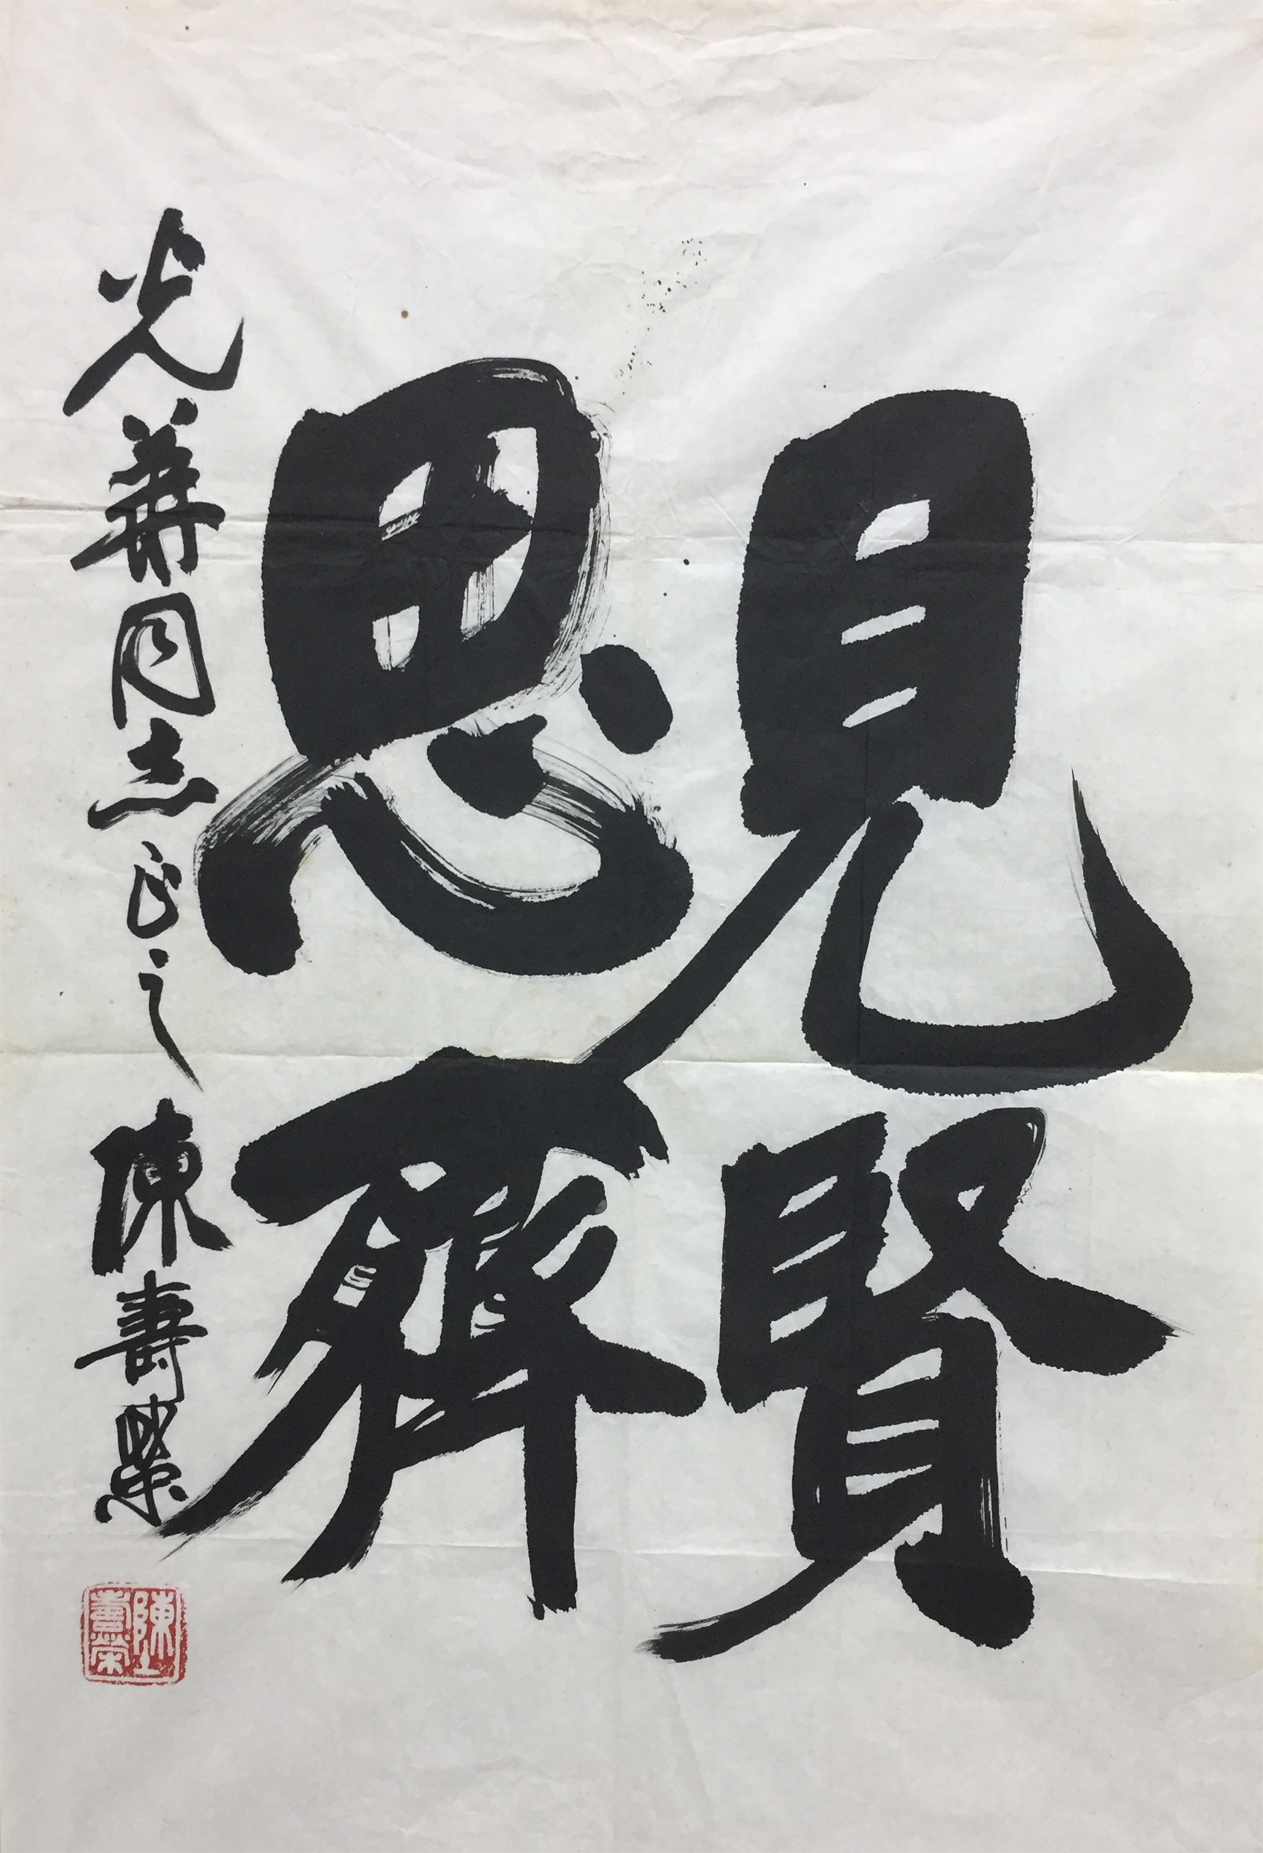 見賢
思齊
光華同志正之
陳壽榮
陳壽榮